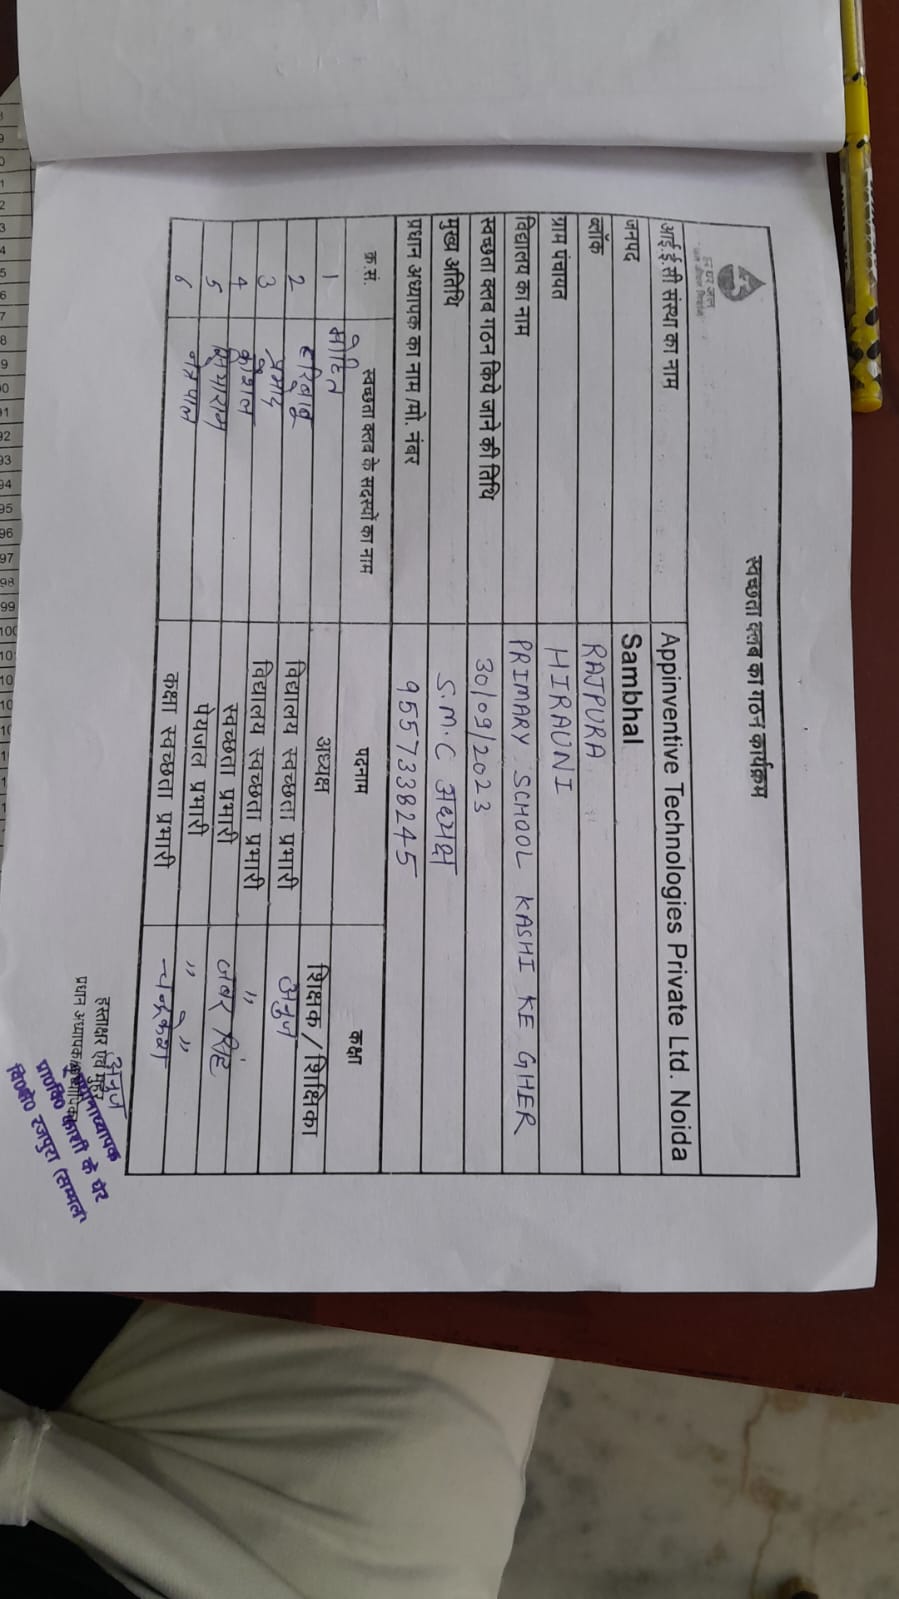 हर घर जल
जल जीवन मिशन
स्वच्छता क्लब का गठन कार्यक्रम
आई.ई.सी संस्था का नाम Appinventive Technologies Private Ltd. Noida
जनपद Sambhal
ब्लॉक RAJPURA
ग्राम पंचायत HIRAUNI
विद्यालय का नाम PRIMARY SCHOOL KASHI KE GHER
स्वच्छता क्लब गठन किये जाने की तिथि 30/09/2023
मुख्य अतिथि S.M.C अध्यक्ष
प्रधान अध्यापक का नाम /मो. नंबर 9557338245
क्र.सं. स्वच्छता क्लब के सदस्यों का नाम पदनाम कक्षा
1 मोहित अध्यक्ष शिक्षक / शिक्षिका
2 हरिबाबू विद्यालय स्वच्छता प्रभारी अनुज
3 प्रमोद विद्यालय स्वच्छता प्रभारी "
4 कौशल स्वच्छता प्रभारी जबर सिंह
5 पेयजल प्रभारी " "
6 नेत्रपाल कक्षा स्वच्छता प्रभारी चन्द्रकेश
अनुज
हस्ताक्षर एवं मुहर
प्रधान अध्यापक/अध्यापिका
प्रधानाध्यापक
प्रा०वि० काशी के घेर
वि०क्षे० रजपुरा (सम्भल)